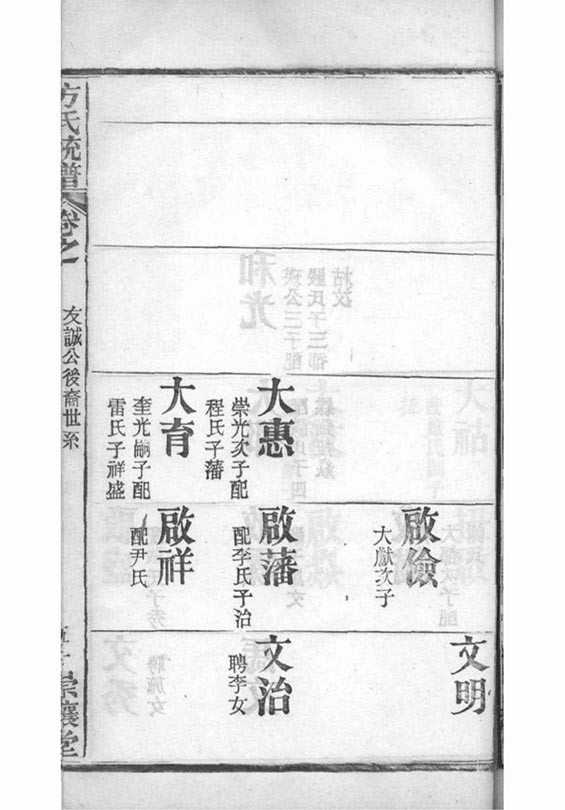 文明
啟儉
大獻次子
大惠
崇光次子配
程氏子藩
啟藩
配李氏子治
文治
聘李女
大育
奎光嗣子配
雷氏子祥盛
啟祥
配尹氏
方氏統譜
卷之一
友誠公後裔世系
崇讓堂